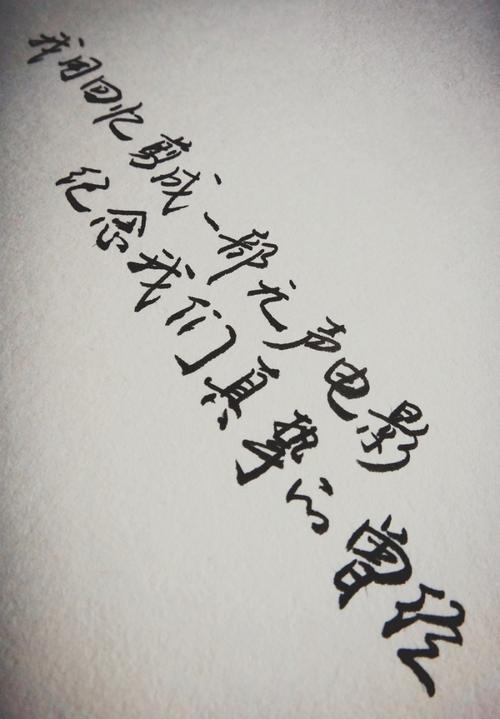 我用回忆剪成一部无声电影
纪念我们真挚的曾经